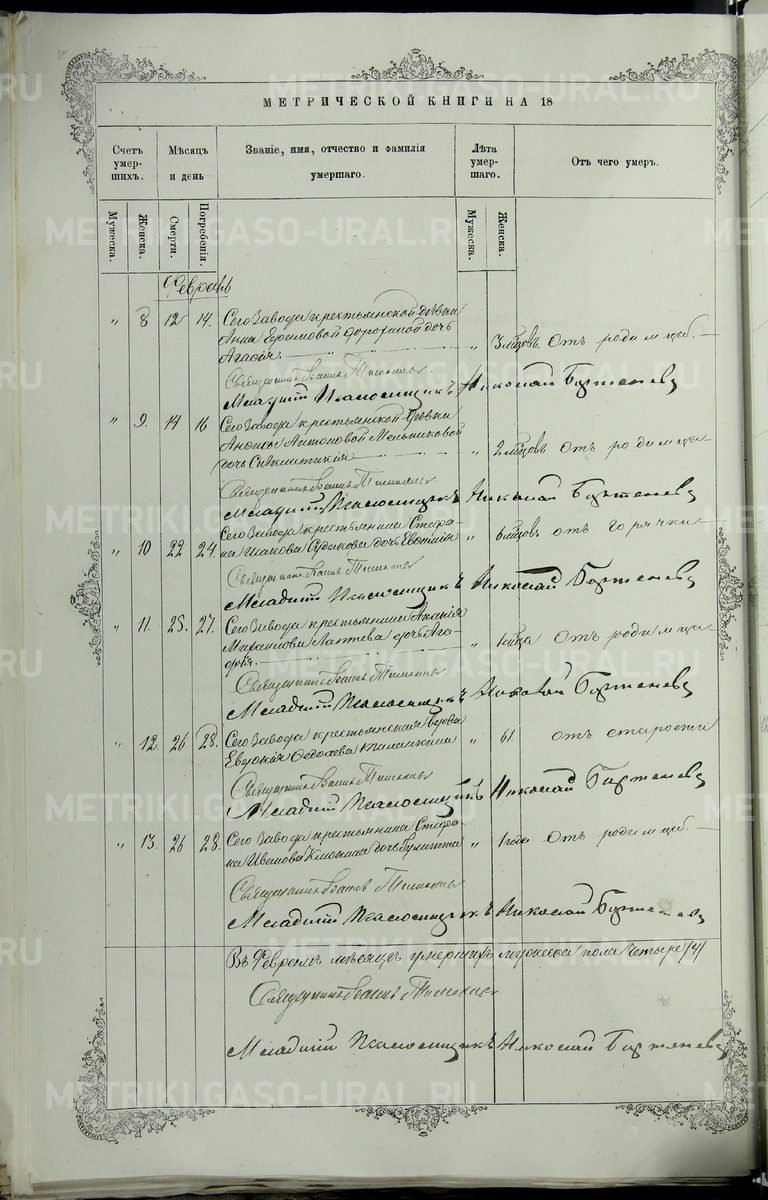 МЕТРИЧЕСКОЙ КНИГИ НА 18
Счетъ умер-шихъ.
Мѣсяцъ и день
Званіе, имя, отчество и фамилія умершаго.
Лѣта умер-шаго.
Отъ чего умеръ.
Мужеска.
Женска.
Смерти.
Погребенія.
Мужеска.
Женска.
Февраль
" 8 12 14. Сего Завода крестьянской дѣвки
Анны Ефимовой дочь
Агафія. " 3 мѣсцовъ Отъ родимцеб.
Священникъ Іоаннъ
Младшій Псаломщикъ Николай Бортеневъ
" 9. 14 16 Сего Завода крестьянской дѣвки
Антоновой Мельниковой
дочь Синклитикія " 2 мѣсцовъ отъ родимца
Священникъ Іоаннъ
Младшій Псаломщикъ Николай Бортеневъ
" 10 22 24. Сего Завода крестьянина Стефа-
на дочь Евфимія " 6 мѣсцовъ отъ горячки
Священникъ Іоаннъ
Младшій Псаломщикъ Николай Бортеневъ
" 11. 25. 27. Сего Завода крестьянина
Михаилова Лаптева дочь Ага-
фія. " 1 мѣсца Отъ родимца
Священникъ Іоаннъ
Младшій Псаломщикъ Николай Бортеневъ
" 12. 26 28. Сего Завода крестьянская вдова
Евдокія " 61. отъ старости
Священникъ Іоаннъ
Младшій Псаломщикъ Николай Бортеневъ
" 13. 26 28. Сего Завода крестьянина Стефа-
на Иванова дочь Улитта " 1 года Отъ родимцеб.
Священникъ Іоаннъ
Младшій Псаломщикъ Николай Бортеневъ
Въ Февралѣ мѣсяцѣ умершихъ мужеска пола четыре (4)
Священникъ Іоаннъ
Младшій Псаломщикъ Николай Бортеневъ
METRIKI.GASO-URAL.RU